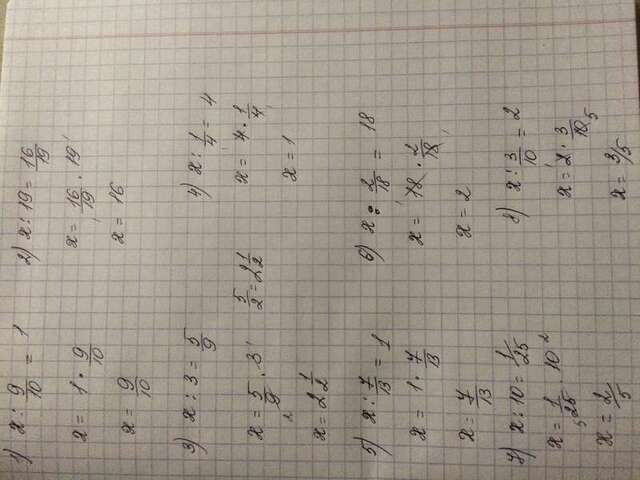 1) x : 9/10 = 1
x = 1 · 9/10
x = 9/10
2) x : 19 = 16/19
x = 16/19 · 19 1
x = 16
3) x : 3 = 5/9
x = 5/9 · 3 1 5/2 = 2 1/2
2
x = 2 1/2
4) x : 1/4 = 4
x = 4 · 1/4
x = 1
5) x : 7/13 = 1
x = 1 · 7/13
x = 7/13
6) x : 2/18 = 18
x = 18 · 2/18
x = 2
7) x : 10 = 1/25
x = 1/25 · 10 2
5
x = 2/5
8) x : 3/10 = 2
x = 2 · 3/10
5
x = 3/5